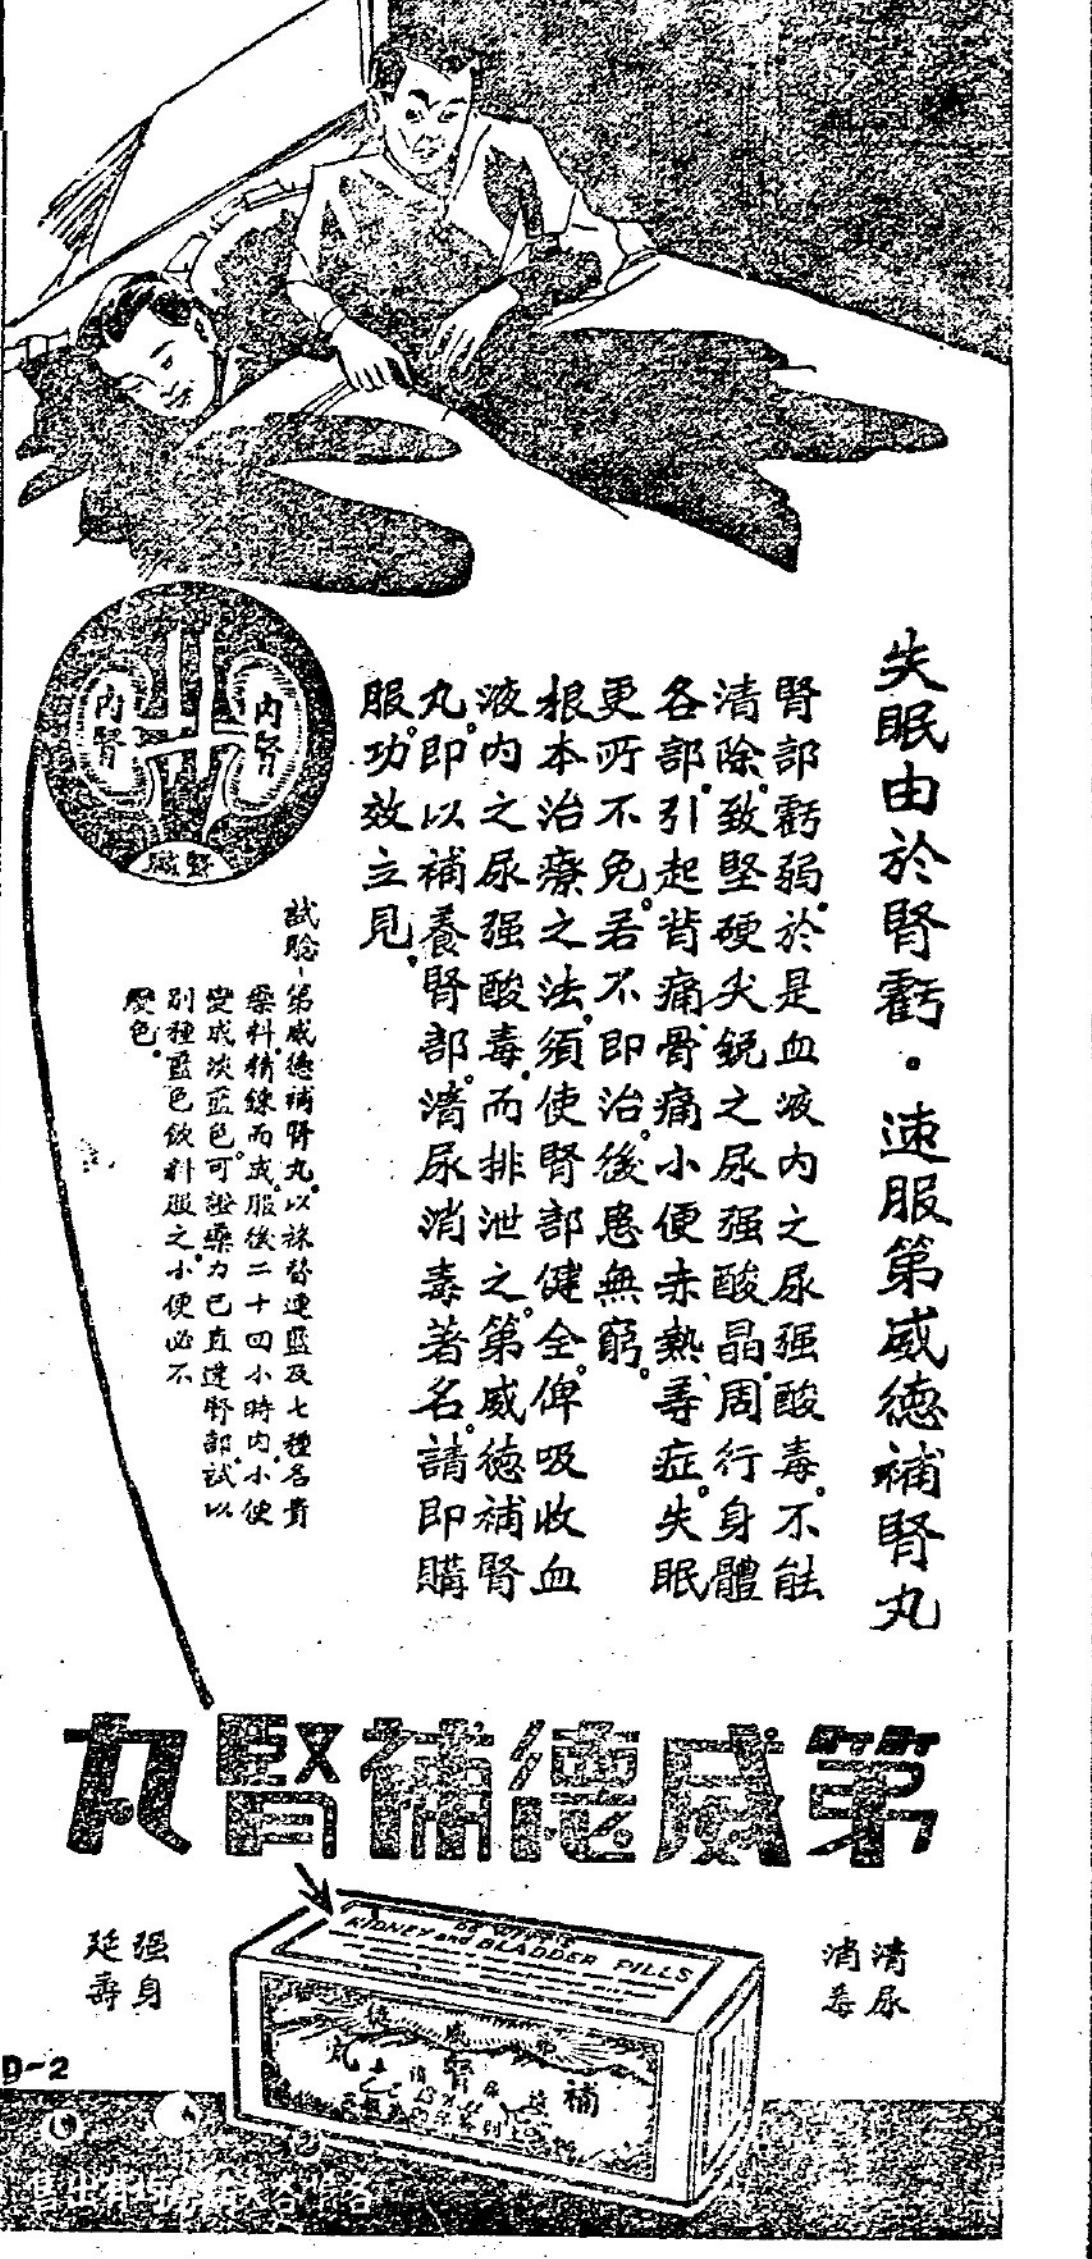 失眠由於腎虧。速服第威德補腎丸
腎部虧弱。於是血液内之尿强酸毒。不能
清除。致堅硬尖銳之尿强酸晶。周行身體
各部。引起背痛、骨痛、小便赤熱、等症。失眠
更所不免。若不即治。後患無窮。
根本治療之法。須使腎部健全。俾吸收血
液内之尿强酸毒。而排泄之。第威德補腎
丸。即以補養腎部。清尿消毒著名。請即購
服。功效立見。
内腎
内腎
腎臟
試驗-第威德補腎丸。以
連藍及七種名貴
藥料。精鍊而成。服後二十四小時内。小便
變成淡藍色。可證藥力已直達腎部。試以
別種藍色飲料服之。小便必不
變色。
第威德補腎丸
清尿
消毒
强身
延壽
DE WITT'S
KIDNEY and BLADDER PILLS
第威德
補腎丸
D-2